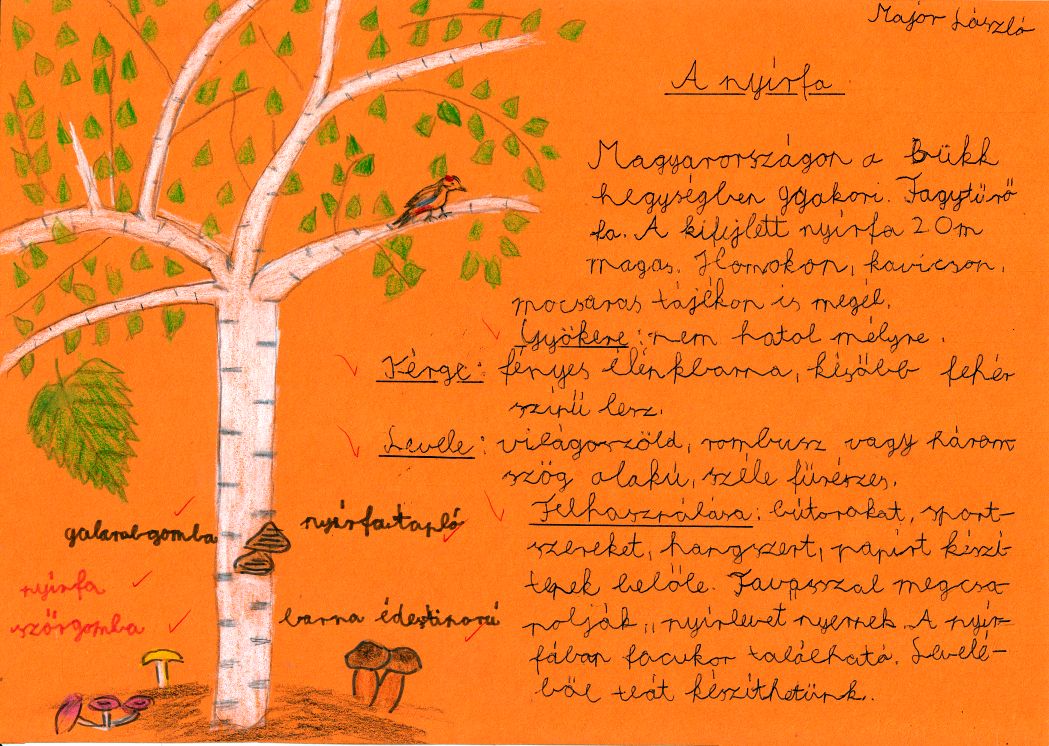 Major László
A nyírfa
Magyarországon a Bükk
hegységben gyakori. Fagytűrő
fa. A kifejlett nyírfa 20m
magas. Homokon, kavicson,
mocsaras tájékon is megél.
Gyökere: nem hatol mélyre.
Kérge: fényes élénkbarna, később fehér
színű lesz.
Levele: világoszöld, rombusz vagy három
szög alakú, széle fűrészes.
Felhasználása: bútorokat, sport-
szereket, hangszert, papírt készí-
tenek belőle. Tavasszal megcsa-
polják, nyírlevet nyernek. A nyír-
fában facukor található. Levelé-
ből teát készíthetünk.
galambgomba
nyírfatapló
nyírfa
szőrgomba
barna édestinorú